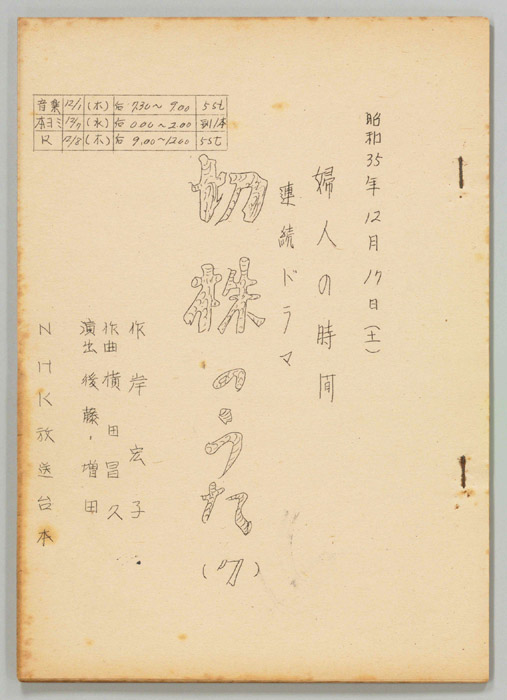 昭和35年12月17日(土)
婦人の時間
連続ドラマ
切株のうた
(7)
作 岸宏子
作曲 横田昌久
演出 後藤、増田
NHK放送台本
音楽 12/1 (木) 后 7.30〜9.00 55t
本ヨミ 12/7 (水) 后 0.00〜2.00
R 12/8 (木) 后 9.00〜12.00 55t